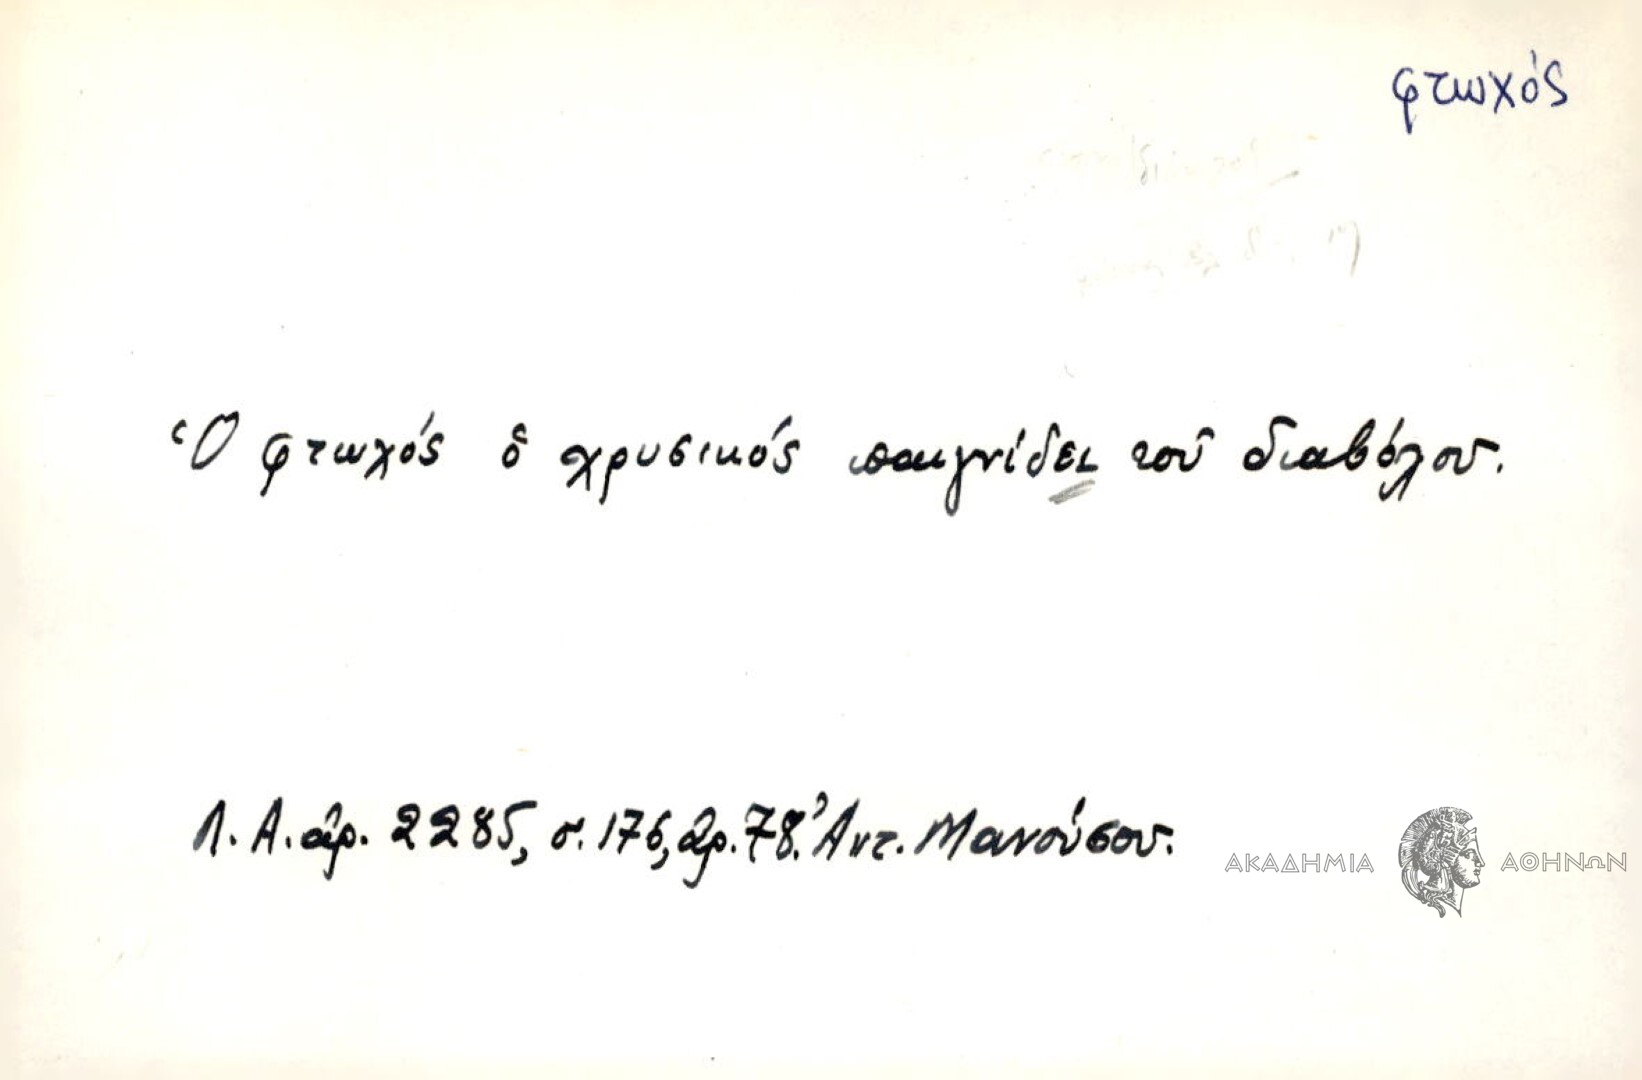 φτωχός
Ὁ φτωχός ὁ χρυσικός παιγνίδει τοῦ διαβόλου.
Λ. Α. ἀρ. 2285, σ. 176, ἀρ. 78. Ἀντ. Μανούσου.
ΑΚΑΔΗΜΙΑ ΑΘΗΝΩΝ